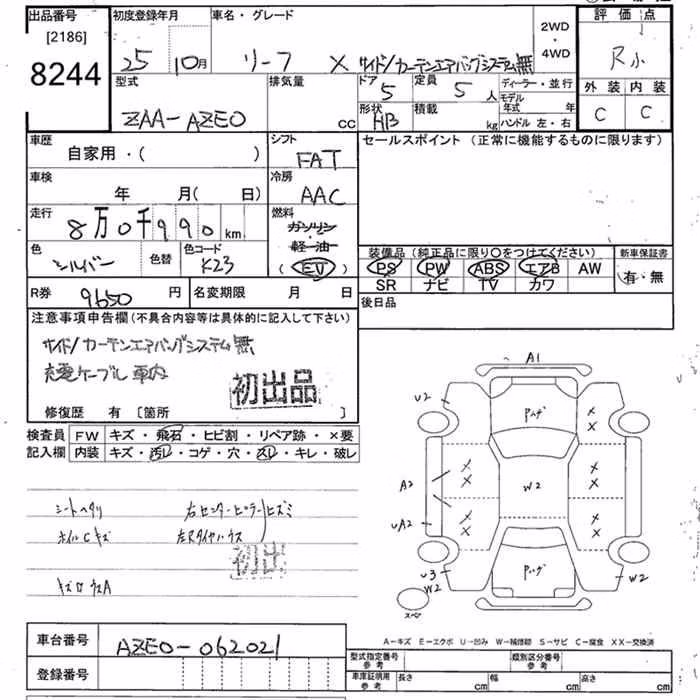 出品番号
[2186]
8244
初度登録年月
25 10月
車名・グレード
リーフ X サイド/カーテンエアバッグシステム無
2WD
・
4WD
評価点
R小
外装 内装
C C
型式
ZAA-AZE0
排気量
cc
ドア
5
定員
5人
形状
HB
積載
kg
ディーラー・並行
モデル年式 年
ハンドル 左・右
車歴
自家用・( )
シフト
FAT
セールスポイント (正常に機能するものに限ります)
車検
年 月(日)
冷房
AAC
走行
8万0千990km
燃料
ガソリン
・
軽・油
(EV)
色
シルバー
色替
色コード
K23
装備品 (純正品に限り○をつけてください)
PS PW ABS エアB AW
SR ナビ TV カワ
新車保証書
有・無
R券 9650円
名変期限 月 日
後日品
注意事項申告欄 (不具合内容等は具体的に記入して下さい)
サイド/カーテンエアバッグシステム無
充電ケーブル車内
初出品
修復歴 有 [箇所 ]
検査員 FW キズ・飛石・ヒビ割・リペア跡・×要
記入欄 内装 キズ・汚レ・コゲ・穴・スレ・キレ・破レ
シートヘタリ
右センターピラーヒズミ
ホイルCキズ
左Rタイヤハウス
初出
A1
U2
Pハゲ
X
X
A2
X
X
W2
X
X
UA2
X
X
X
X
U3
W2
Pハゲ
W2
スペア
A-キズ E-エクボ U-凹み W-補修跡 S-サビ C-腐食 XX-交換済
車台番号
AZE0-062021
登録番号
型式指定番号
参考
類別区分番号
参考
車庫証明用
参考
長さ cm
幅 cm
高さ cm